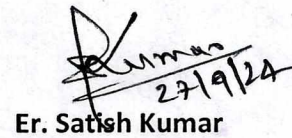 Kumar
27/9/24
Er. Satish Kumar